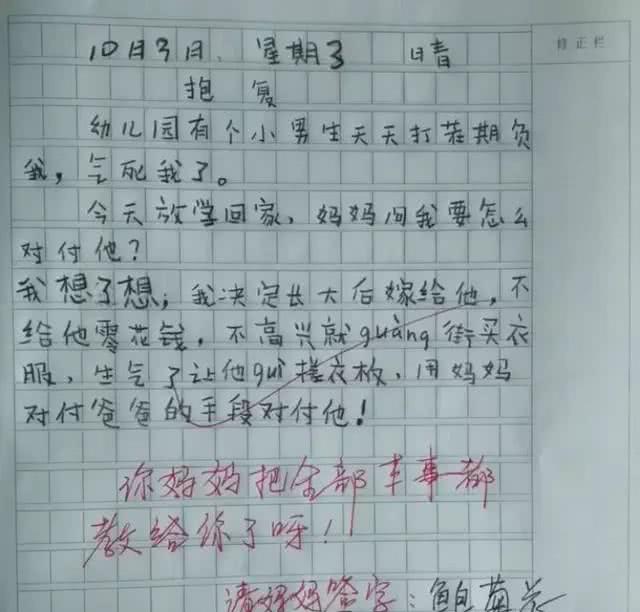 10月3日 星期3 晴
修正栏
抱复
幼儿园有个小男生天天打茬期负
我，气死我了。
今天放学回家，妈妈问我要怎么
对付他？
我想了想，我决定长大后嫁给他，不
给他零花钱，不高兴就guàng街买衣
服，生气了让他guì搓衣板，用妈妈
对付爸爸的手段对付他！
你妈妈把全部本事都
教给你了呀！
请妈妈签字：鲍